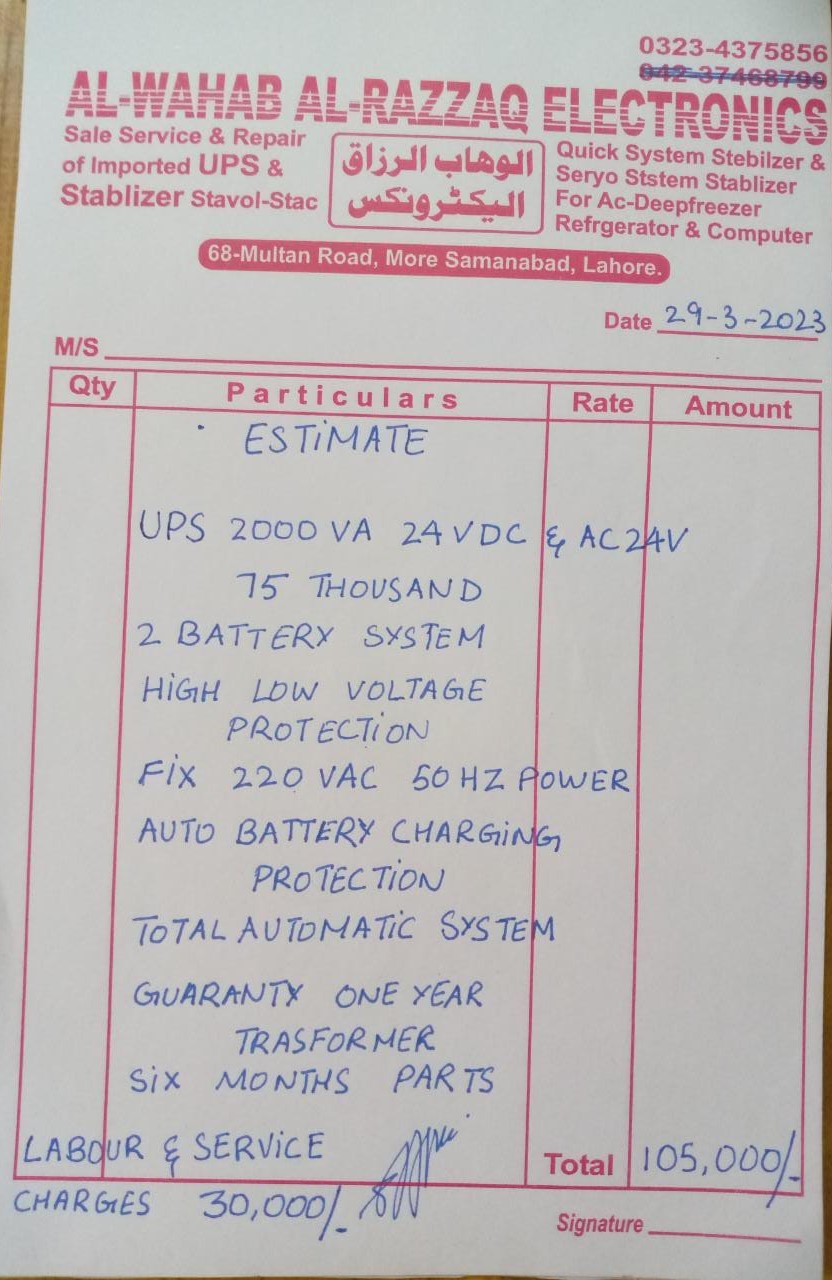 0323-4375856
042-37468799
AL-WAHAB AL-RAZZAQ ELECTRONICS
Sale Service & Repair
of Imported UPS &
Stablizer Stavol-Stac
الوهاب الرزاق
اليكٹرونکس
Quick System Stebilzer &
Seryo Ststem Stablizer
For Ac-Deepfreezer
Refrgerator & Computer
68-Multan Road, More Samanabad, Lahore.
Date 29-3-2023
M/S
Qty Particulars Rate Amount
ESTIMATE
UPS 2000 VA 24 VDC & AC 24V
75 THOUSAND
2 BATTERY SYSTEM
HIGH LOW VOLTAGE
PROTECTION
FIX 220 VAC 50 HZ POWER
AUTO BATTERY CHARGING
PROTECTION
TOTAL AUTOMATIC SYSTEM
GUARANTY ONE YEAR
TRASFORMER
SIX MONTHS PARTS
LABOUR & SERVICE
Total 105,000/-
CHARGES 30,000/-
Signature